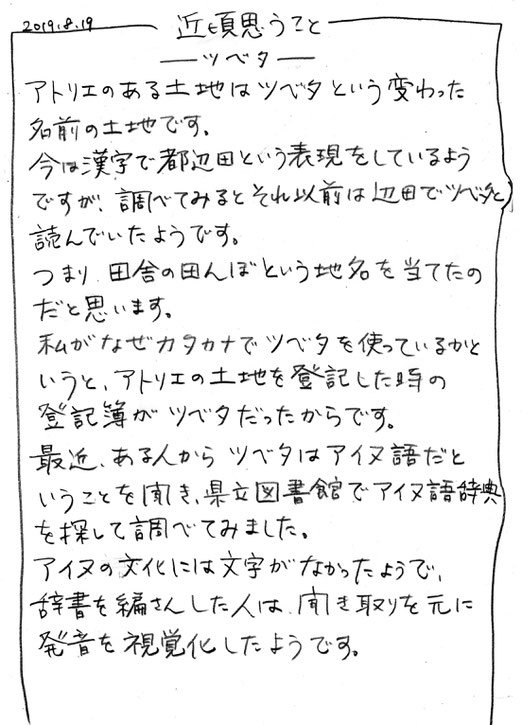 2019.8.19
近頃思うこと
ーツベターー
アトリエのある土地はツベタという変わった
名前の土地です。
今は漢字で都辺田という表現をしているよう
ですが、調べてみるとそれ以前は辺田でツベタと
読んでいたようです。
つまり、田舎の田んぼという地名を当てたの
だと思います。
私がなぜカタカナでツベタを使っているかと
いうと、アトリエの土地を登記した時の
登記簿がツベタだったからです。
最近、ある人からツベタはアイヌ語だと
いうことを聞き、県立図書館でアイヌ語辞典
を探して調べてみました。
アイヌの文化には文字がなかったようで、
辞書を編さんした人は、聞き取りを元に
発音を視覚化したようです。